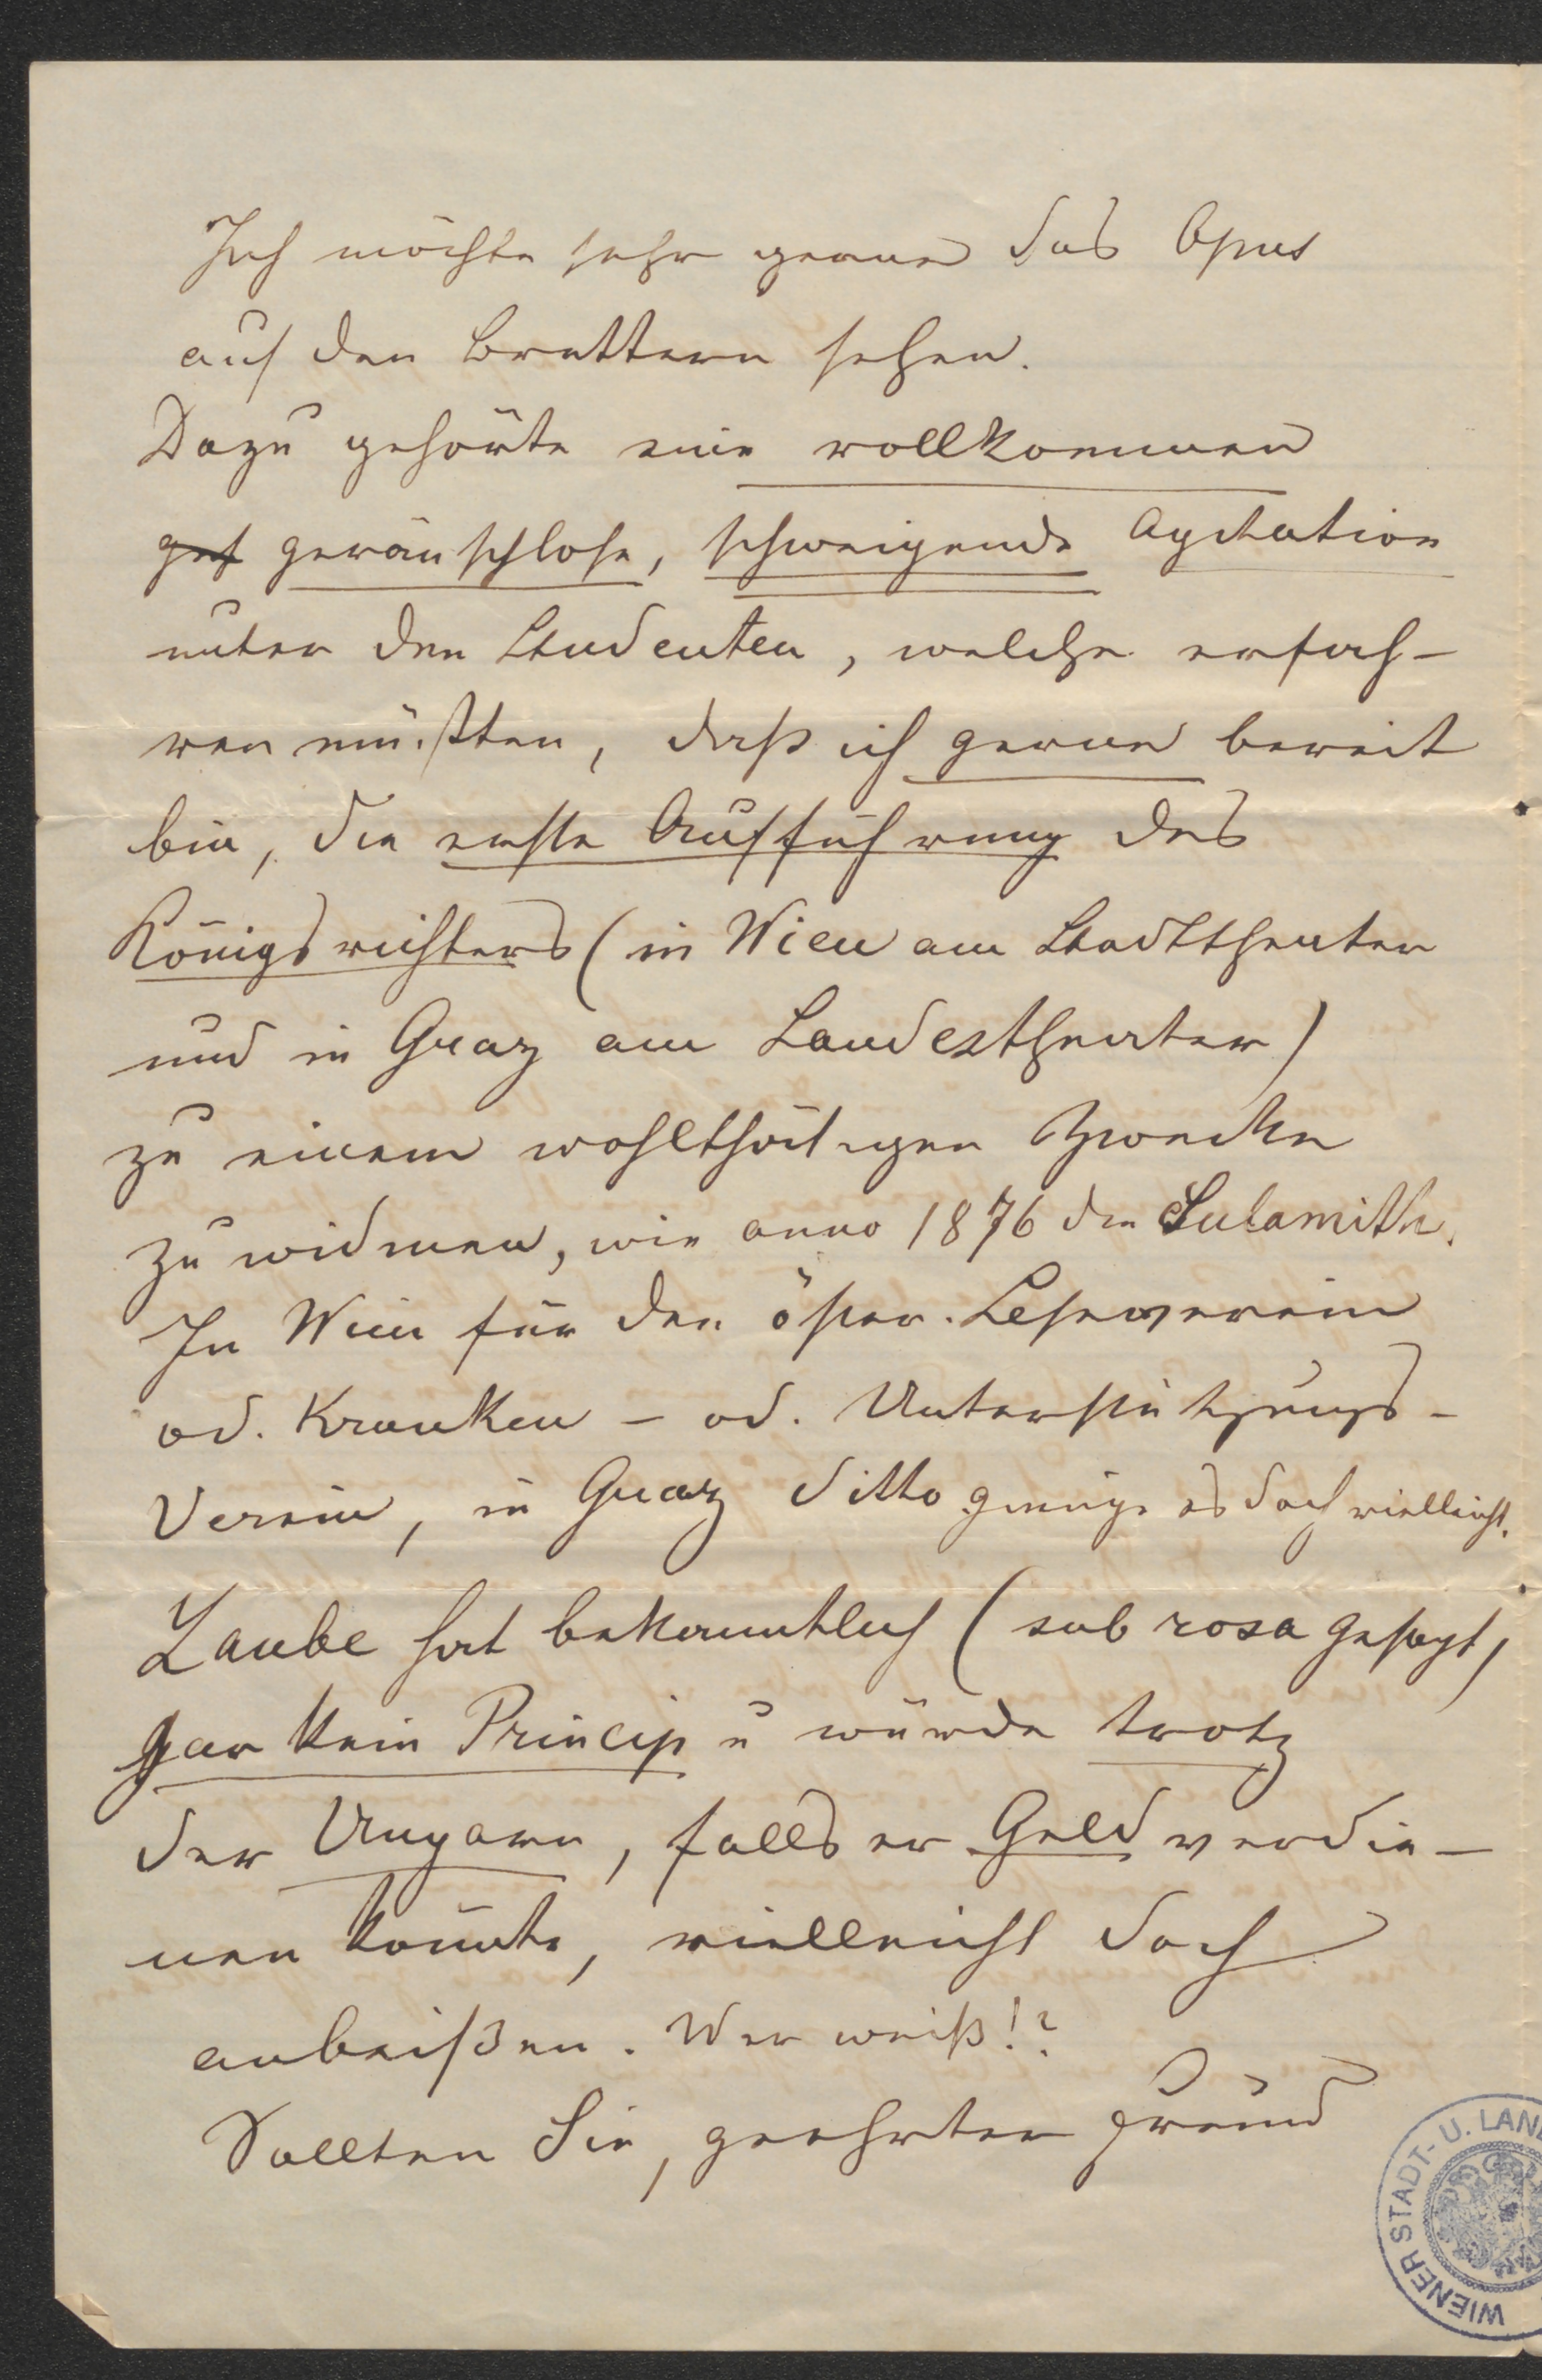 Ich möchte sehr gerne das Opus
auf den Brettern sehen.
Dazu gehörte eine vollkommen
geh geräuschlose, schweigende Agitation
unter den Studenten, welche erfah-
ren müßten, daß ich gerne bereit
bin, die erste Aufführung des
Königsrichters (in Wien am Stadttheater
und in Graz am Landestheater)
zu einem wohlthätigen Zwecke
zu widmen, wie anno 1876 die Sulamith.
In Wien für den öster. Leseverein
od. Kranken – od. Unterstützungs-
Verein, in Graz ditto ginge es doch vielleicht.
Laube hat bekanntlich (sub rosa gesagt)
gar kein Princip u würde trotz
der Ungarn, falls er Geld verdie-
nen könnte, vielleicht doch
anbeißen. Wer weiß!?
Sollten Sie, geehrter Freund
WIENER STADT- U. LAN